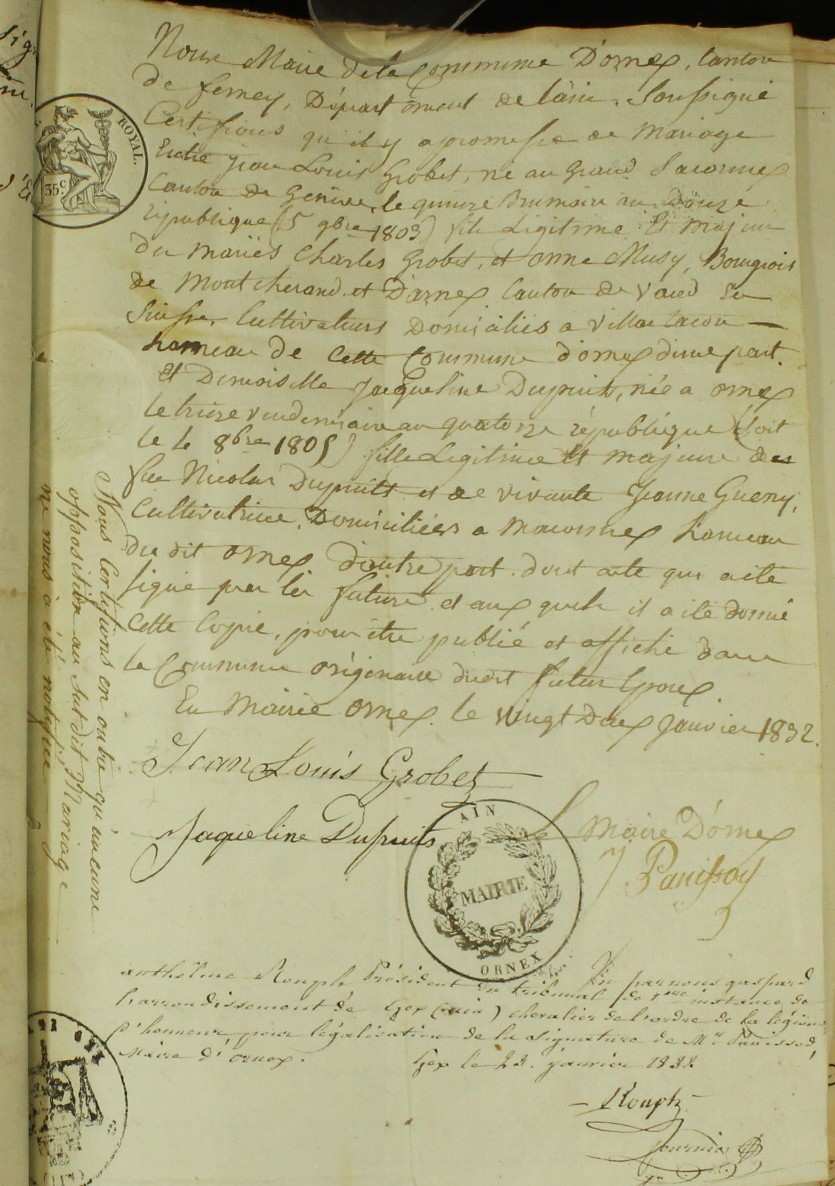 Nous Maire de la Commune D'ornex, Canton
de ferney, Départ ement de l'ain, Soussigné
Certifions qu'il y a promesse de Mariage
Entre jean Louis Grobet, né au Grand Saconnex
Canton de Genève, le quinze Brumaire an Douze
République (5 9bre 1803) fils Légitime Et Majeur
des mariés Charles Grobet, et anne Musy, Bourgeois
de Montcherand et D'arnex, Canton de Vaud en
Suisse, Cultivateurs Domiciliés a Villa
hameau de Cette Commune d'ornex d'une part.
Et Demoiselle Jacqueline Dupuits, née a ornex
le treize vendémiaire an quatorze république (soit
le 8bre 1805) fille Légitime Et majeure des
feu Nicolas Dupuits et de vivante Jeanne
Cultivatrice, Domiciliées a Maconnex hameau
du dit ornex, d'autre part. dont acte qui a été
signé par les future, et aux quels il a été donné
Cette Copie, pour être publié et affiché dans
la Commune originaire dudit futur Epoux
En Mairie ornex, le vingt Deux Janvier 1832.
Jean Louis Grobet
Jaqueline Dupuits
Le Maire D'ornex
Panissod
Nous Certifions en outre qu'aucune
opposition au Susdit Mariage
ne nous à été notifiée
Vu par nous gaspard
anthelme Rouph Président du tribunal de 1ere instance de
l'arrondissement de Gex (ain) chevalier de l'ordre de la légion
d'honneur pour légalisation de la signature de Mr Panissod,
Maire d'ornex. Gex le 23 janvier 1832
Rouph
ROYAL.
35 c
AIN
MAIRIE
ORNEX